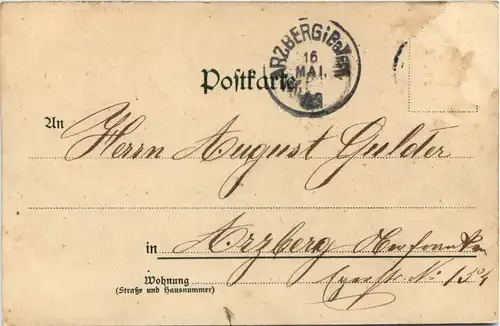 ARZBERG i BAYERN
16
MAI.
Postkarte
An
Herrn August Gulder
in Arzberg Oberfranken
Wohnung No 154
(Straße und Hausnummer)